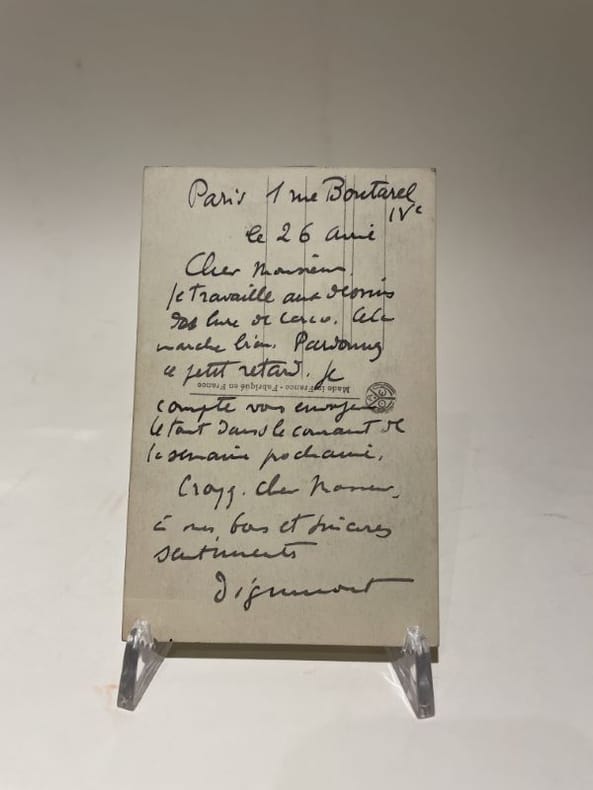 Paris 1 rue Boutarel
IVe
le 26 avril
Cher Monsieur.
Je travaille aux dessins
du livre de Carco. Cela
marche bien. Pardonnez
ce petit retard. Je
Made in France - Fabriqué en France
compte vous envoyer
le tout dans le courant de
la semaine prochaine.
Croyez, cher Monsieur,
à mes bons et sincères
sentiments
Dignimont